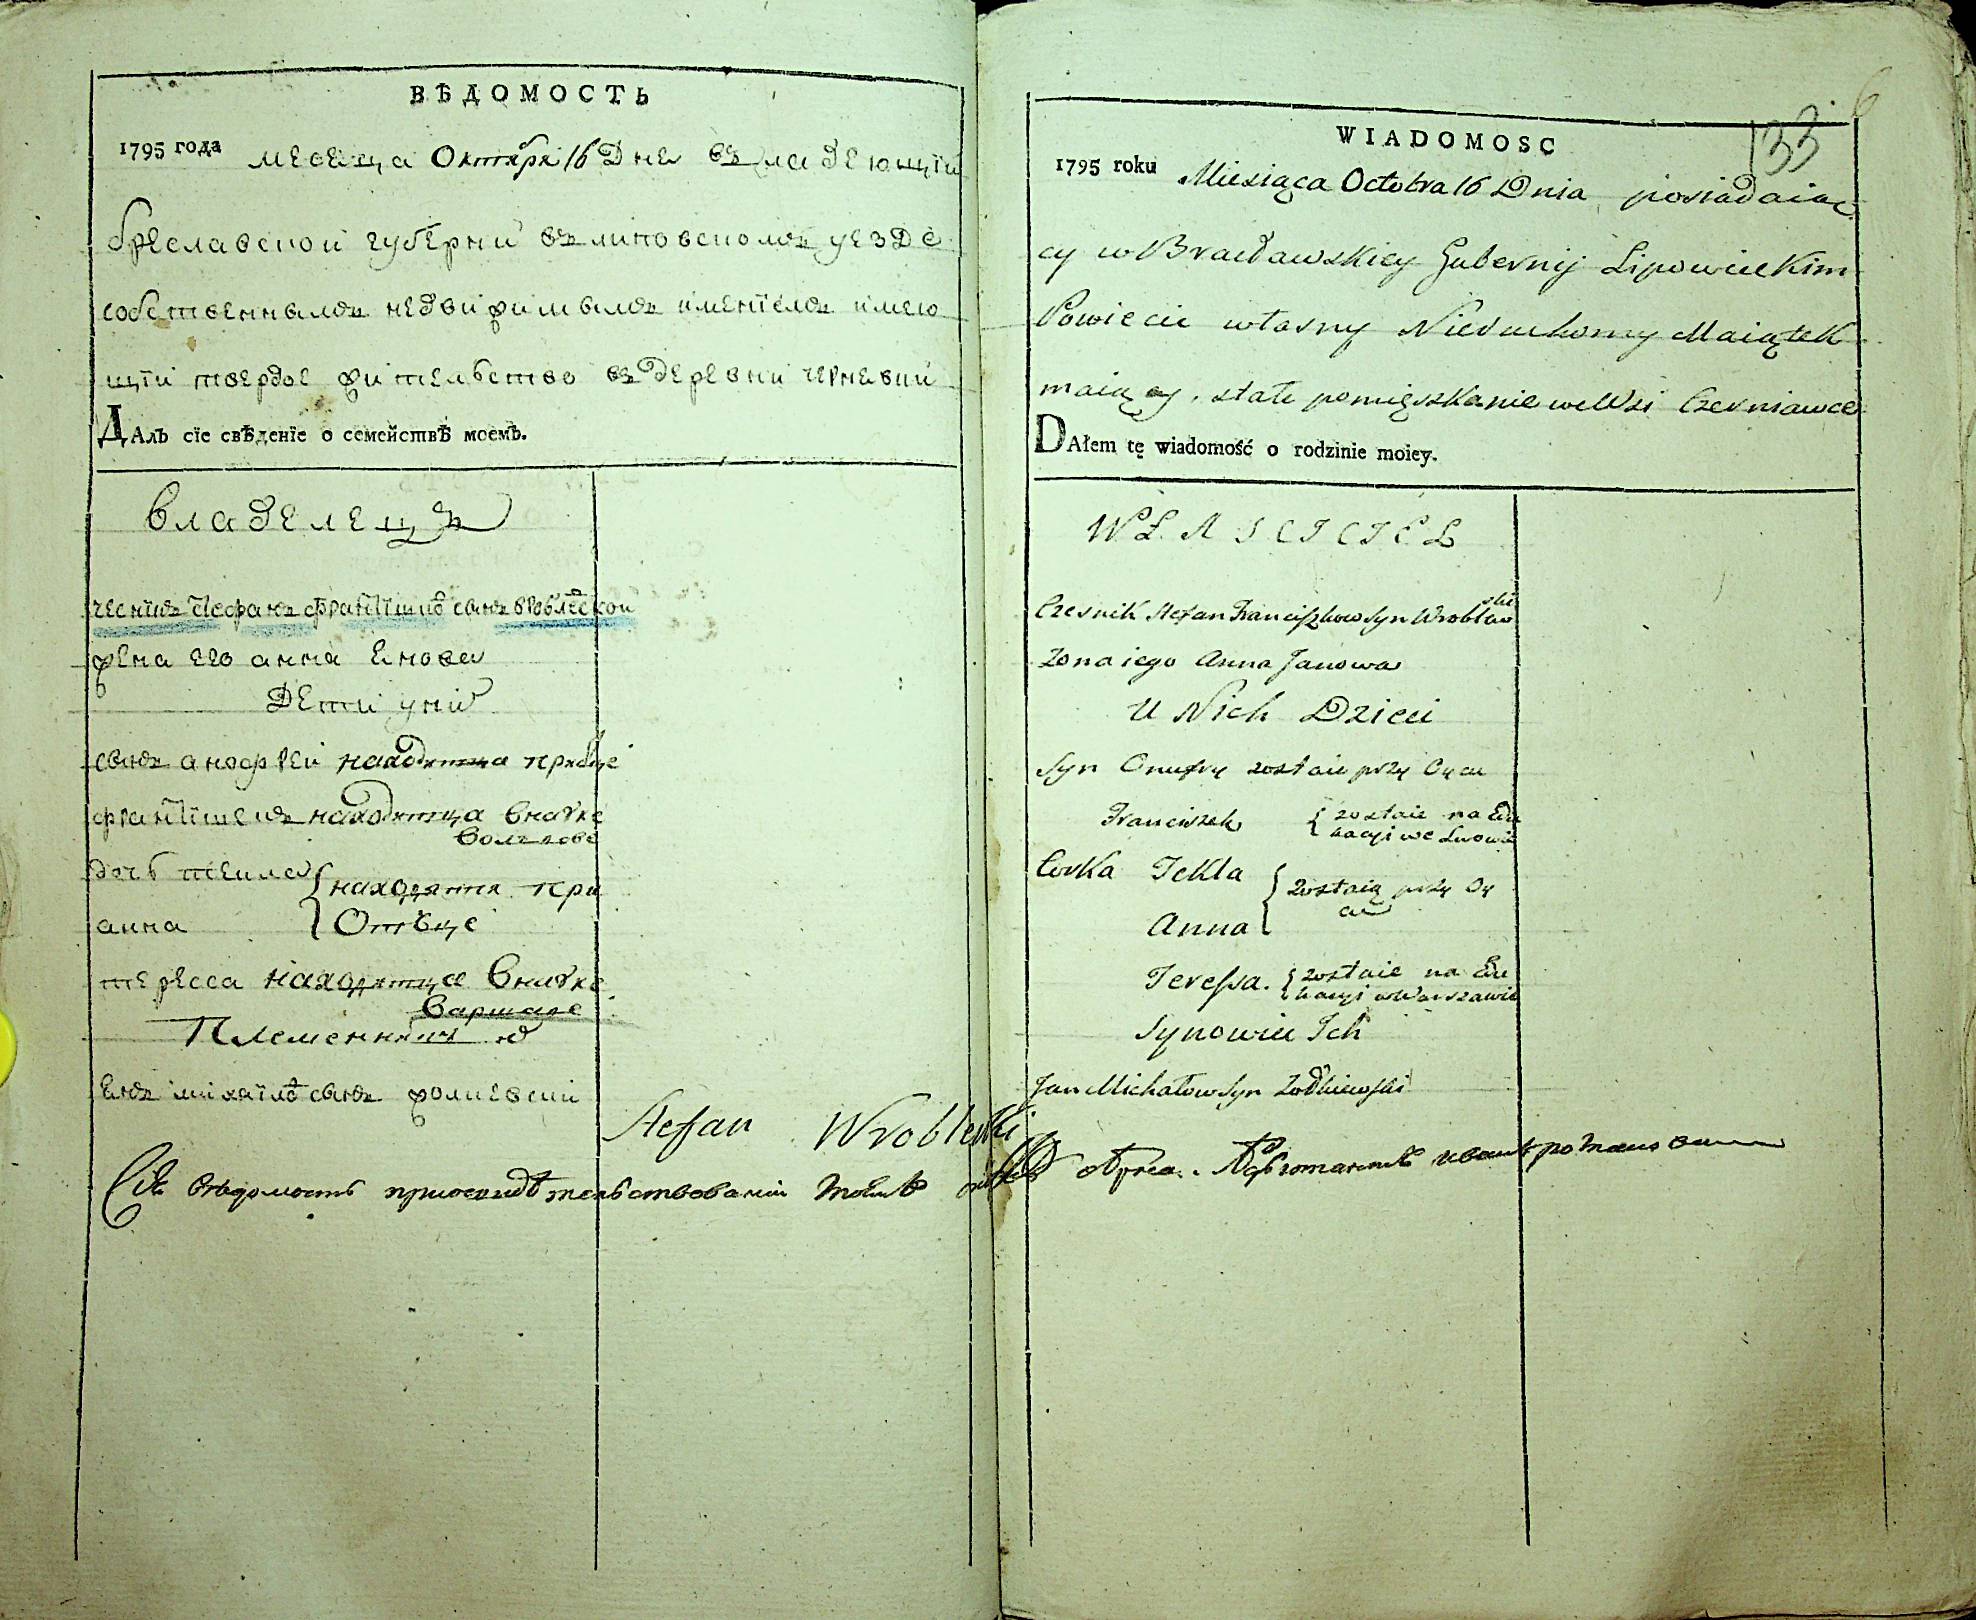 ВѢДОМОСТЬ
1795 года месеца Октября 16 Дне владеющїи
бреславскои губернии въ липовскомъ уезде
собственнымъ недвижимымъ именїемъ имею
щїи твердое жителъство въ деревни черневки
ДАлъ сїе свѣденїе о семействѣ моемъ.
владелецъ
чеснїкъ Стефанъ францїшковъ сынъ вроблеской
жена его анна Енова
Дети у них
сынъ анофреи находитца при
францїшекъ находитца внауке
дочь текла находятся при
анна Отъце
тересса находитца внауке
Варшаве
Племенник
Енъ михаїловъ сынъ
Stefan Wroblewski
WIADOMOSC
133
6
1795 roku Miesiąca Octobra 16 Dnia posiadaiąc
cy w Bracławskiey Gubernij Lipowieckim
Powiecie własny Nieruchomy Maiątek
maiący, stałe pomięszkanie we Wsi Czerniawce
DAłem tę wiadomość o rodzinie moiey.
WŁASCICIEL
Czesnik Stefan Franciszkow Syn Wroblewski
Zona iego Anna Janowa
U Nich Dzieci
Syn Onufry zostaie przy Oycu
Franciszek zostaie na Edu
kacyi we Lwowie
Corka Tekla zostaią przy Oy
cu
Anna
Teressa. zostaie na Edu
kacyi w Warszawie
Synowiec Ich
Jan Michałow Syn